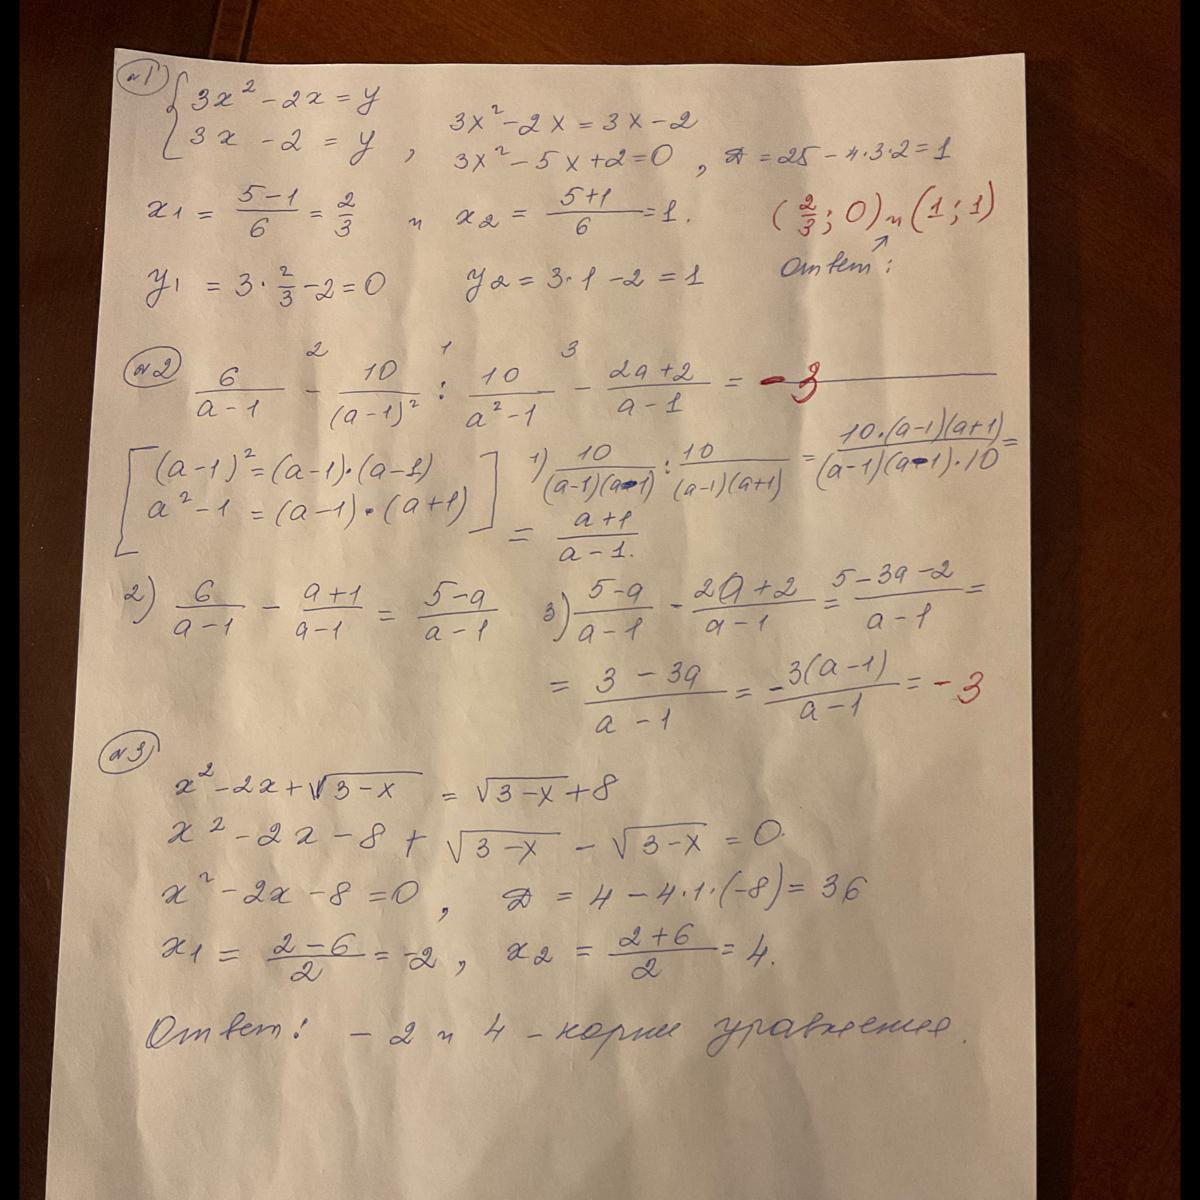 №1 { 3x² - 2x = y
3x - 2 = y ,
3x² - 2x = 3x - 2
3x² - 5x + 2 = 0 , D = 25 - 4·3·2 = 1
x1 = (5-1)/6 = 2/3 и x2 = (5+1)/6 = 1. (2/3; 0) и (1; 1)
Ответ:
y1 = 3·2/3 - 2 = 0 y2 = 3·1 - 2 = 1
2 1 3
№2 6/(a-1) - 10/(a-1)² : 10/(a²-1) - (2a+2)/(a-1) = -3
[ (a-1)² = (a-1)·(a-1)
a² - 1 = (a-1)·(a+1) ]
1) 10/((a-1)(a-1)) : 10/((a-1)(a+1)) = (10·(a-1)(a+1))/((a-1)(a-1)·10) =
= (a+1)/(a-1).
2) 6/(a-1) - (a+1)/(a-1) = (5-a)/(a-1) 3) (5-a)/(a-1) - (2a+2)/(a-1) = (5-3a-2)/(a-1) =
= (3-3a)/(a-1) = (-3(a-1))/(a-1) = -3
№3
x² - 2x + √(3-x) = √(3-x) + 8
x² - 2x - 8 + √(3-x) - √(3-x) = 0.
x² - 2x - 8 = 0 , D = 4 - 4·1·(-8) = 36
x1 = (2-6)/2 = -2 , x2 = (2+6)/2 = 4.
Ответ: -2 и 4 - корни уравнения.